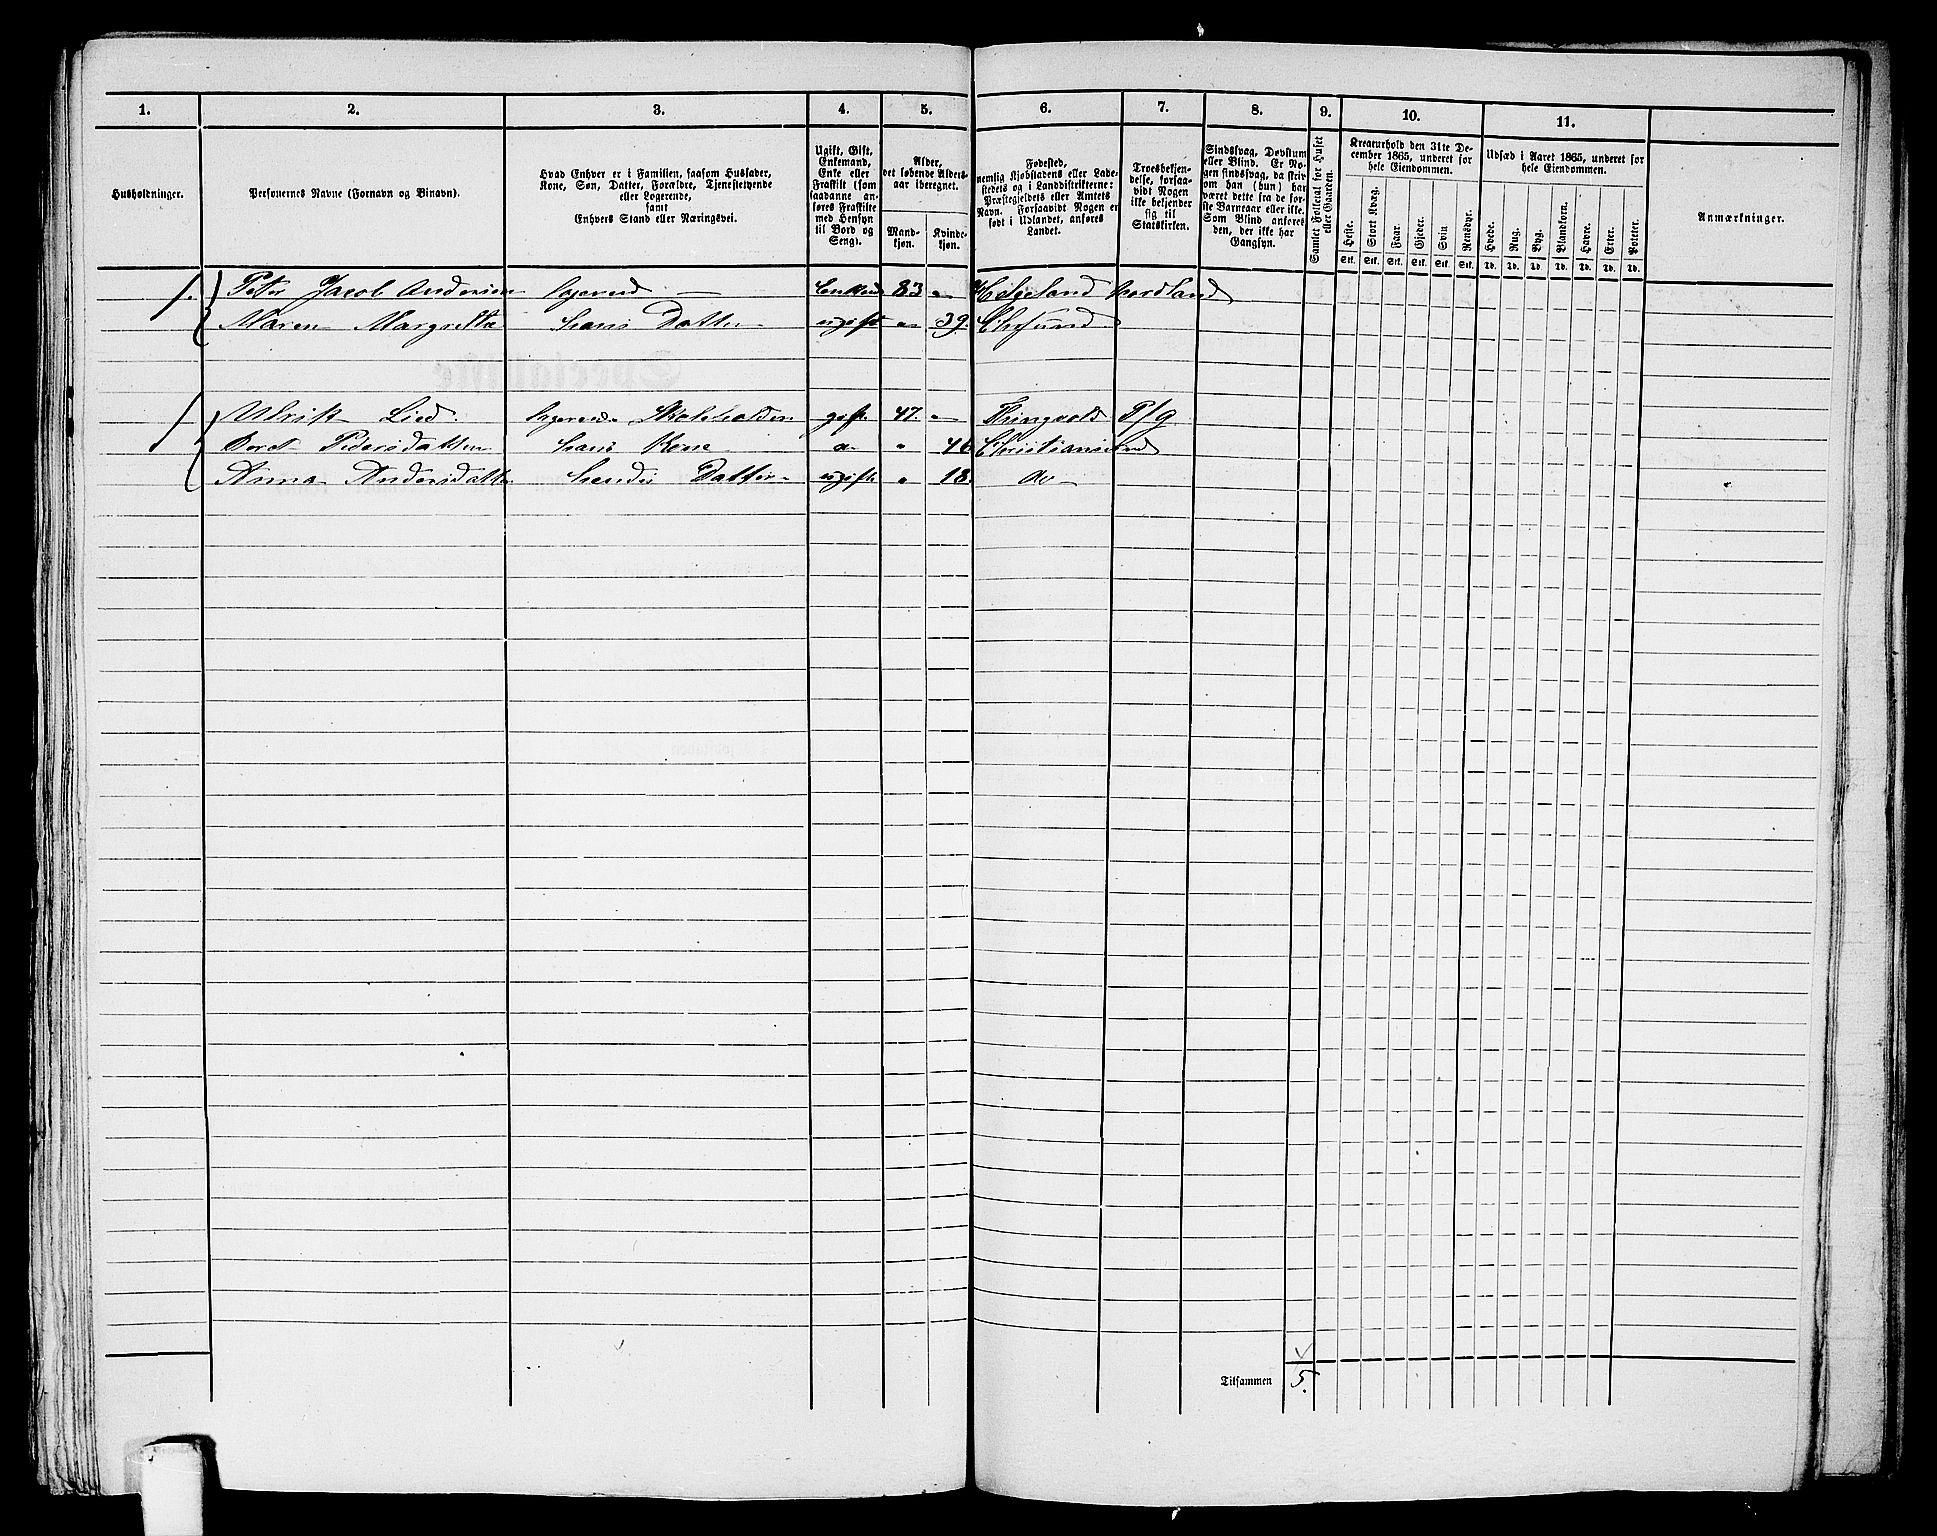 1. 2. 3. 4. 5. 6. 7. 8. 9. 10. 11.
Husholdninger.
Personernes Navne (Fornavn og Binavn).
Hvad Enhver er i Familien, saasom Husfader,
Kone, Søn, Datter, Forældre, Tjenestetyende
eller Logerende,
samt
Enhvers Stand eller Næringsvei.
Ugift, Gift,
Enkemand,
Enke eller
Fraskilt (som
saadanne an-
føres Fraskilte
med Hensyn
til Bord og
Seng).
Alder,
det løbende Alders-
aar iberegnet.
Mand-
kjøn.
Kvinde-
kjøn.
Fødested,
nemlig Kjøbstadens eller Lade-
stedets og i Landdistrikterne:
Præstegjeldets eller Amtets
Navn. Forsaavidt Nogen er
født i Udlandet, anføres
Landet.
Troesbekjen-
delse, forsaa-
vidt Nogen
ikke bekjender
sig til
Statskirken.
Sindssvag, Døvstum
eller Blind. Er No-
gen sindssvag, da skriv
om han (hun) har
været dette fra de før-
ste Barneaar eller ikke.
Som Blind anføres
den, der ikke har
Gangsyn.
Samlet Folketal for Huset
eller Gaarden.
Kreaturhold den 31te De-
cember 1865, underet for
hele Eiendommen.
Heste. Stort Kvæg. Faar. Gjeder. Svin Rensdyr.
Stk. Stk. Stk. Stk. Stk. Stk.
Udsæd i Aaret 1865, underet for
hele Eiendommen.
Hvede. Rug. Byg. Blandkorn. Havre. Erter. Poteter.
Td. Td. Td. Td. Td. Td. Td.
Anmærkninger.
1. Peter Jacob Andersen Logerend Enkem 83 " Helgeland Nordland
Maren Margretta Hans Datter ugift " 39. Chrsund
1 Ulrik Lied. Logerende Skoleholder gift 47. " Thingvold P/g
Beret Pedersdatter Hans Kone do " 46 Christiansund
Anna Andersdatter Hendes Datter ugift " 18. do
Tilsammen 5.